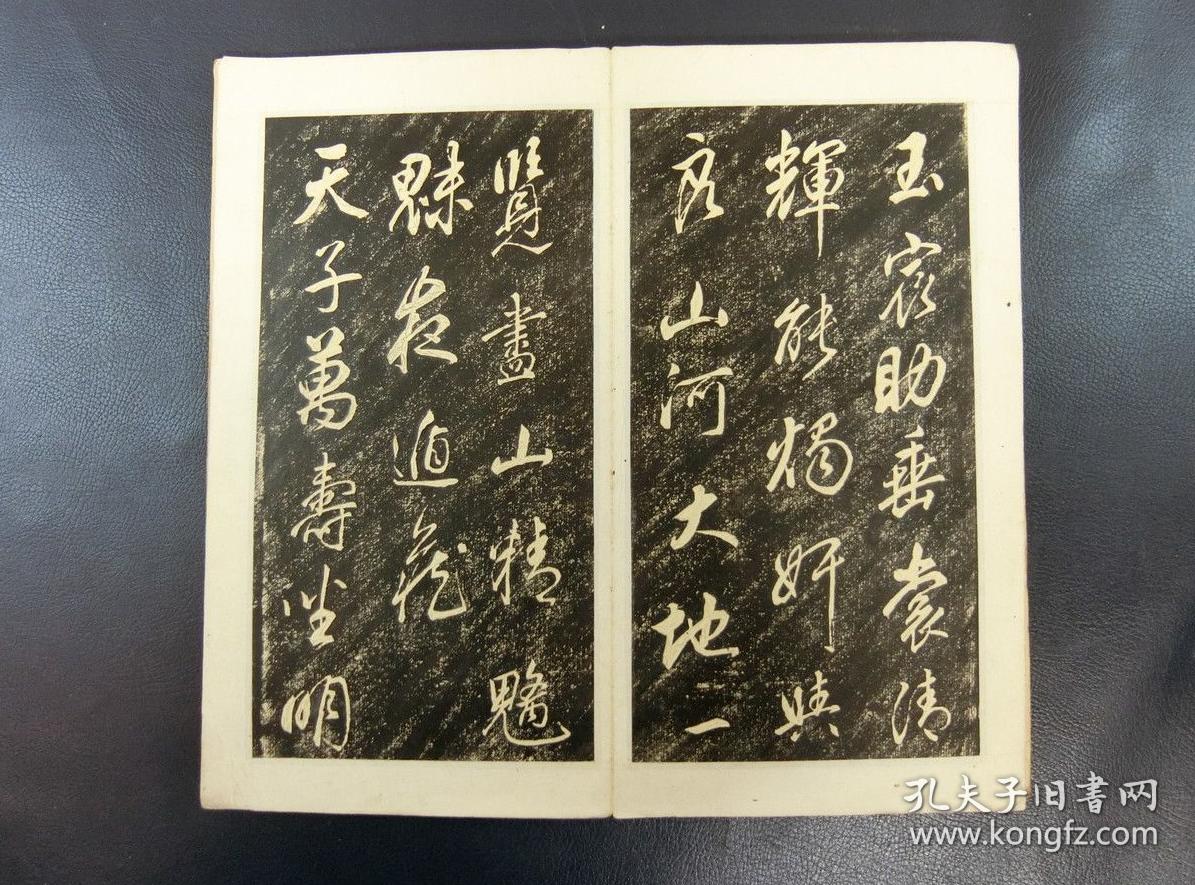 玉宸助垂裳清
輝能燭奸與
良山河大地一
覽盡山精魑
魅夜遁藏
天子萬壽坐明
孔夫子旧書网
www.kongfz.com